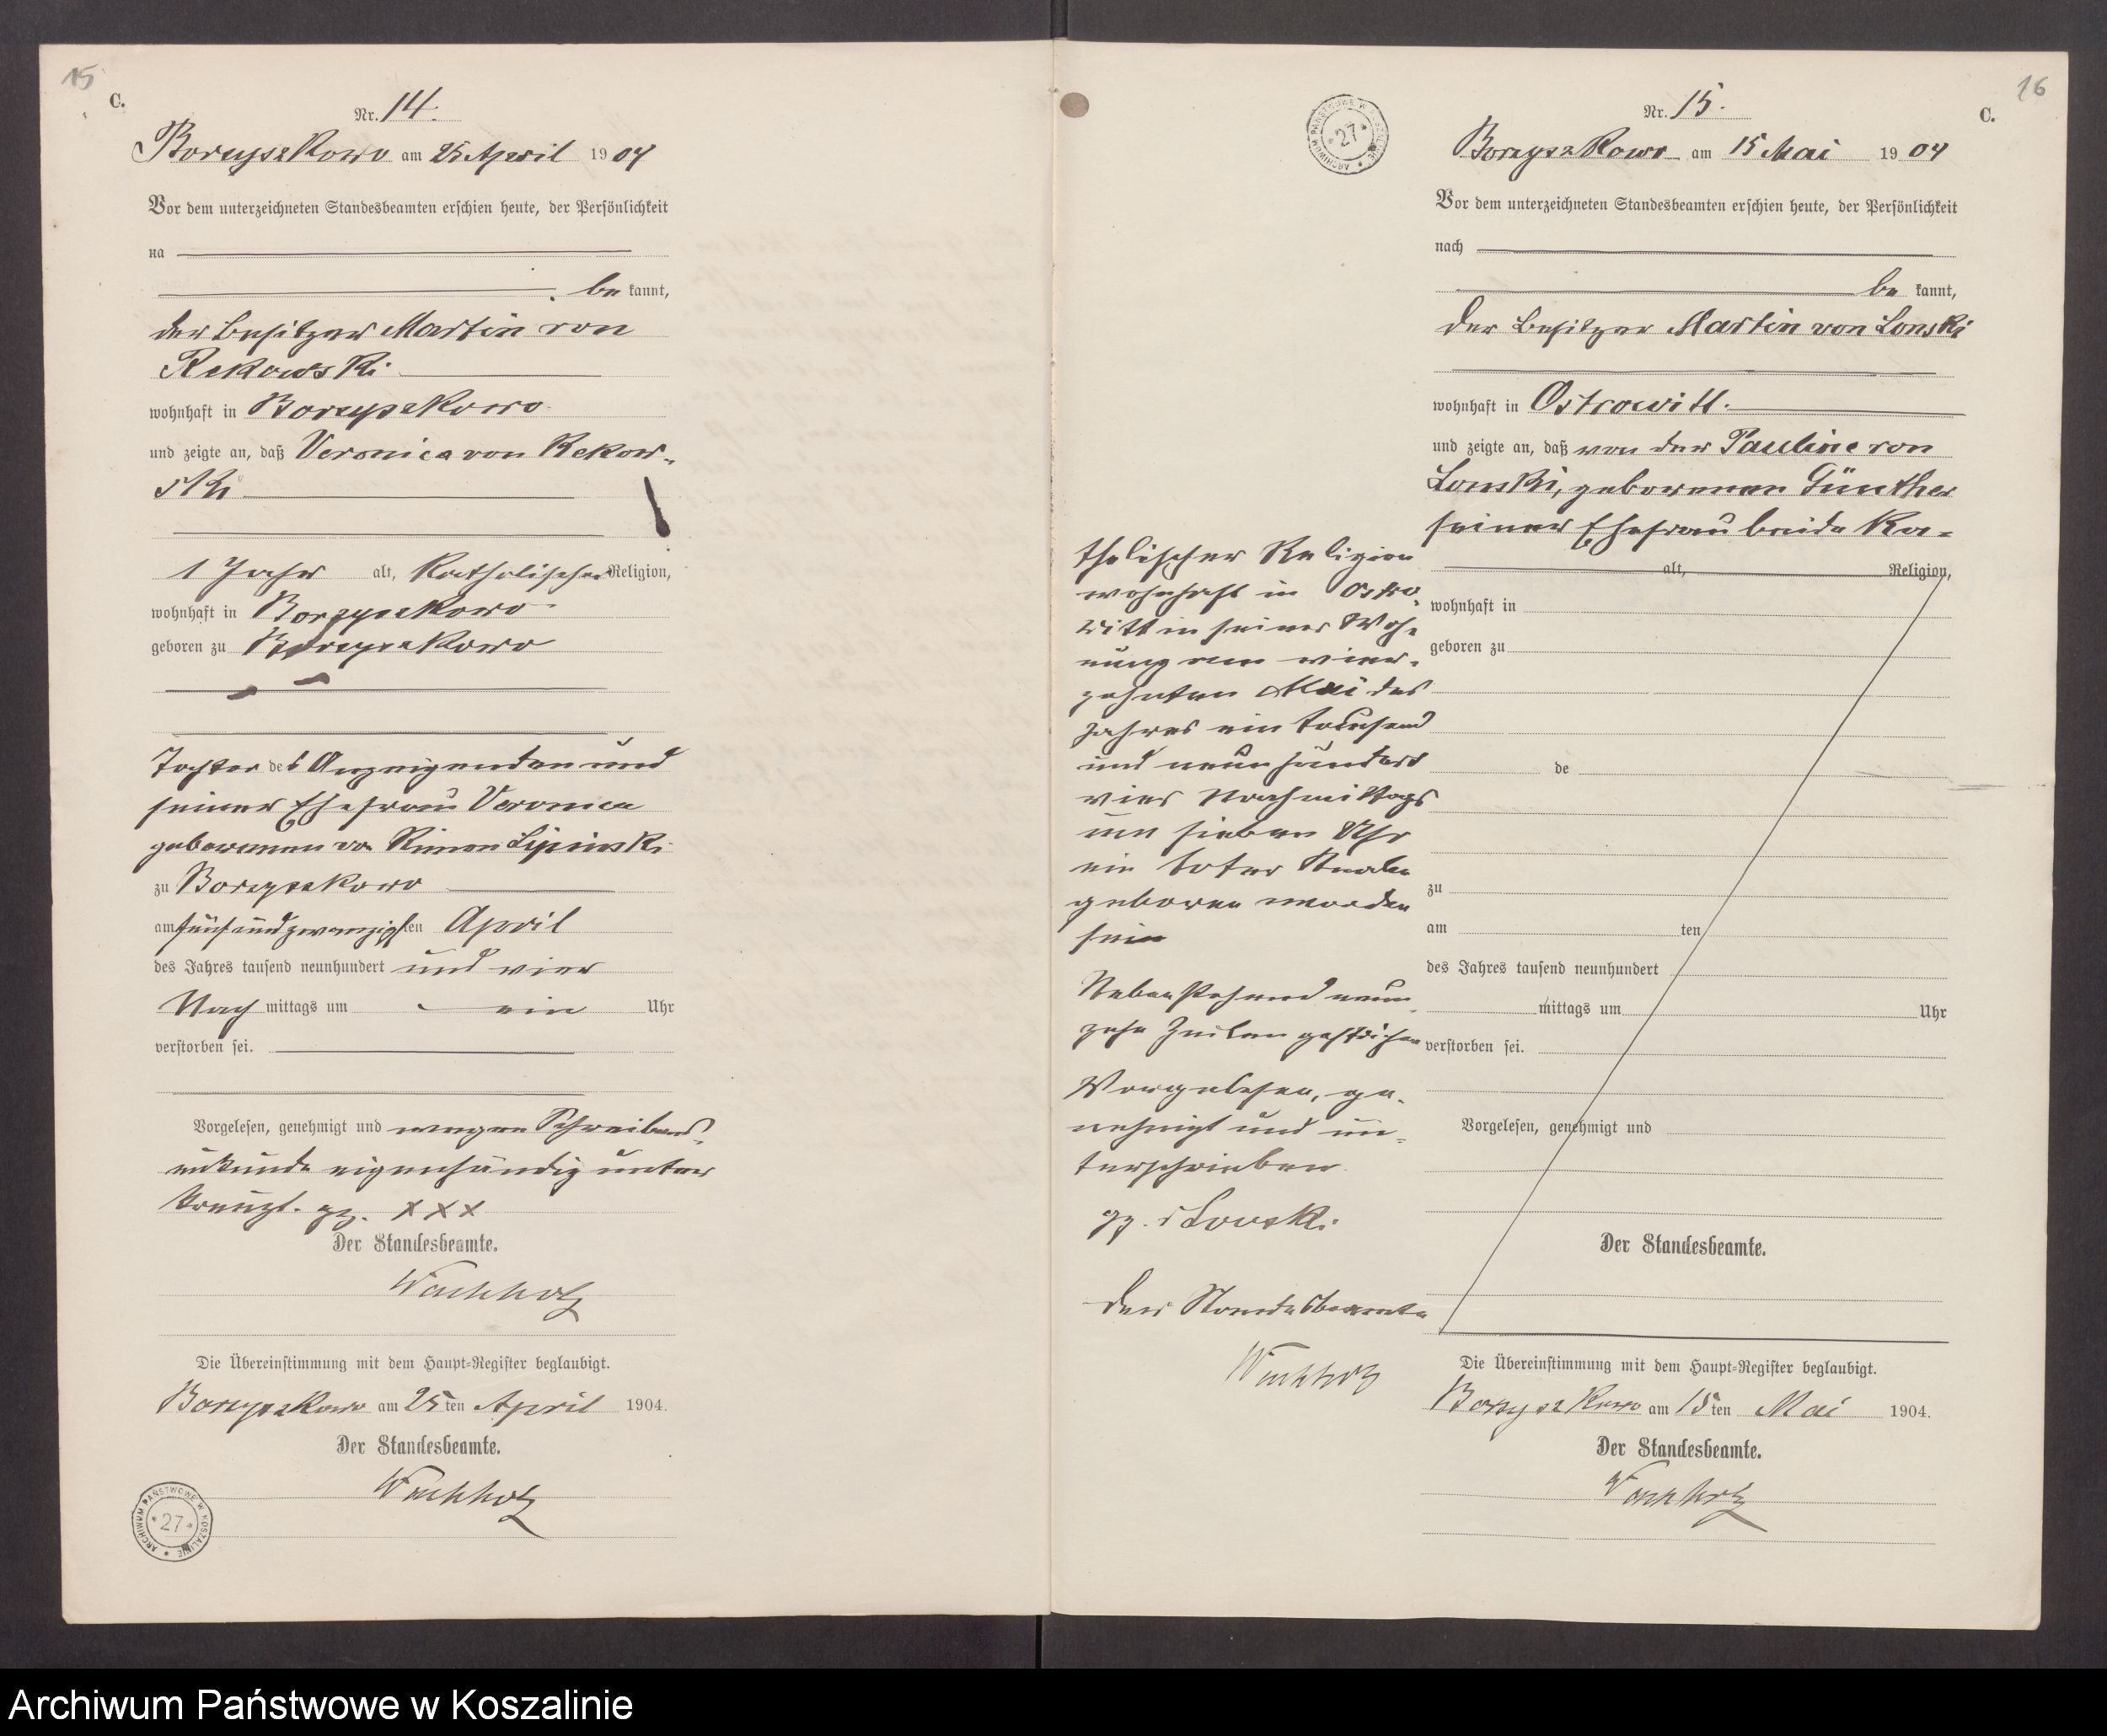 15
C.
Nr. 14.
Borzyszkowo am 25 April 1904
Vor dem unterzeichneten Standesbeamten erschien heute, der Persönlichkeit
na
be kannt,
der Besitzer Martin von
Rekowski
wohnhaft in Borzyszkowo
und zeigte an, daß Veronica von Rekow-
ski
1 Jahr alt, katholischer Religion,
wohnhaft in Borzyszkowo
geboren zu Borzyszkowo
Tochter des Anzeigenden und
seiner Ehefrau Veronica
geborenen von Lipinski
zu Borzyszkowo
am fünfundzwanzigsten April
des Jahres tausend neunhundert und vier
Nach mittags um ein Uhr
verstorben sei.
Vorgelesen, genehmigt und wegen Schreibens-
unkunde eigenhändig unter
kreuzt. gz. XXX
Der Standesbeamte.
Wachholz
Die Übereinstimmung mit dem Haupt-Register beglaubigt.
Borzyszkowo am 25ten April 1904.
Der Standesbeamte.
Wachholz
ARCHIWUM PAŃSTWOWE W KOSZALINIE
* 27 *
16
C.
ARCHIWUM PAŃSTWOWE W KOSZALINIE
* 27 *
Nr. 15.
Borzyszkowo am 15 Mai 1904
Vor dem unterzeichneten Standesbeamten erschien heute, der Persönlichkeit
nach
be kannt,
der Besitzer Martin von Lonski
wohnhaft in Ostrowitt.
und zeigte an, daß von der Pauline von
Lonski, geborenen Günther
seiner Ehefrau beide ka-
tholischer Religion
wohnhaft in Ostro-
witt in seiner Woh-
nung am vier-
zehnten Mai des
Jahres ein tausend
und neunhundert
vier Nachmittags
um sieben Uhr
ein toter Knabe
geboren worden
sei
Nebenstehend neun-
zehn Zeilen gestrichen
Vorgelesen, ge-
nehmigt und un-
terschrieben
gz. v Lonski.
Der Standesbeamte
Wachholz
alt, Religion,
wohnhaft in
geboren zu
de
zu
am ten
des Jahres tausend neunhundert
mittags um Uhr
verstorben sei.
Vorgelesen, genehmigt und
Der Standesbeamte.
Die Übereinstimmung mit dem Haupt-Register beglaubigt.
Borzyszkowo am 15ten Mai 1904.
Der Standesbeamte.
Wachholz
Archiwum Państwowe w Koszalinie